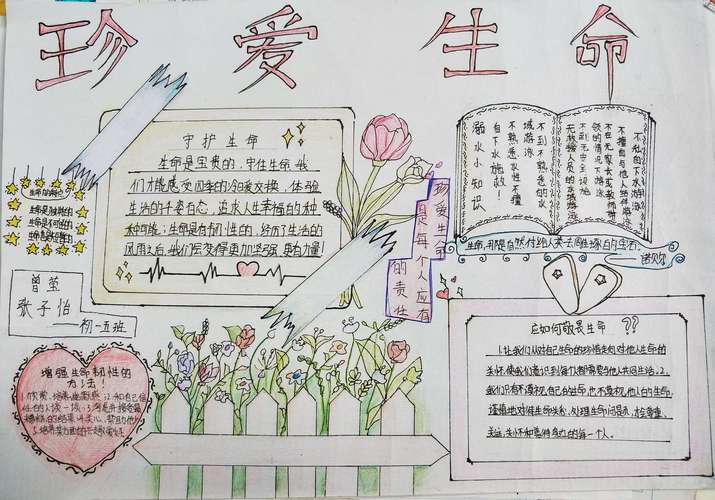 珍爱生命
守护生命
生命是宝贵的,守住生命,我
们才能感受四季的冷暖交换,体验
生活的千姿百态,追求人生幸福的种
种可能;生命是有韧性的,经历了生活的
风雨之后,我们会变得更加坚强,更有力量!
生命的特点
生命是独特的
生命是不可逆的
生命是短暂的
曾莹
张子怡
——初一五班
增强生命韧性的
方法!
珍爱生命
是每个人应有
的责任
不私自下水游泳
不擅自与他人结伴游泳
不在无家长或教师带
领的情况下游泳
不到无安全设施
无救援人员的水域游泳
不到不熟悉的水
域游泳
不熟悉水性不擅
自下水施救!
溺水小知识
生命,那是自然付给人类去雕琢的宝石。
——诺贝尔
应如何敬畏生命??
1.让我们从对自己生命的珍惜走向对他人生命的
关怀,使我们意识到每个人都需要与他人共同生活;2.
我们只有不漠视自己的生命,也不漠视他人的生命,
谨慎地对待生命关系、处理生命问题,
关注、关怀和善待身边的每一个人。